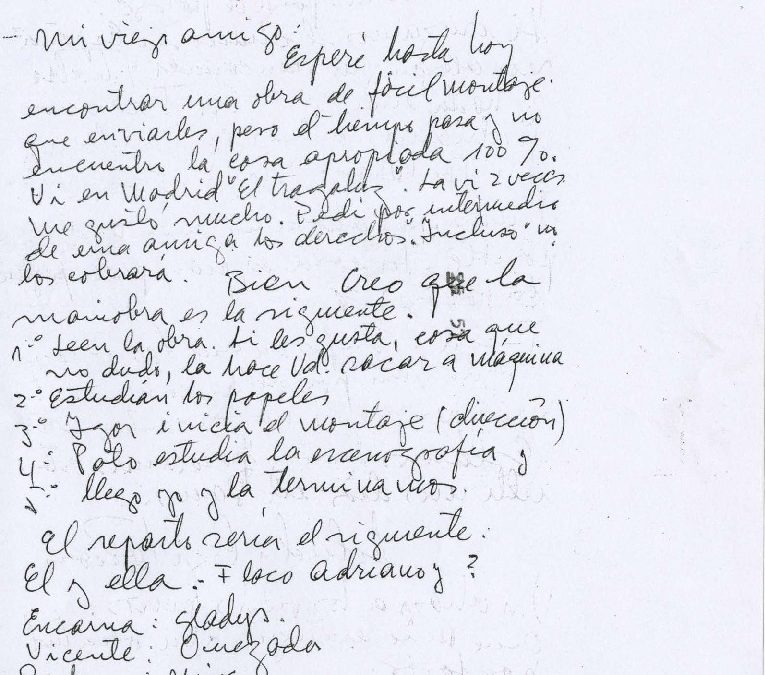 - Mi viejo amigo:
Esperé hasta hoy
encontrar una obra de fácil montaje
que enviarles, pero el tiempo pasa y no
encuentro la cosa apropiada 100%.
Vi en Madrid "El tragaluz". La vi 2 veces
me gustó mucho. Pedí por intermedio
de una amiga los derechos. "Incluso" ni
los cobrará. Bien Creo que la
maniobra es la siguiente.
1º Leen la obra. Si les gusta, cosa que
no dudo, la hace Ud. sacar a máquina
2º Estudian los papeles
3º Igor inicia el montaje (dirección)
4º Polo estudia la escenografía y
5º llego yo y la terminamos.
El reparto sería el siguiente:
El y ella.- Adriano y ?
Encarna: Gladys.
Vicente: